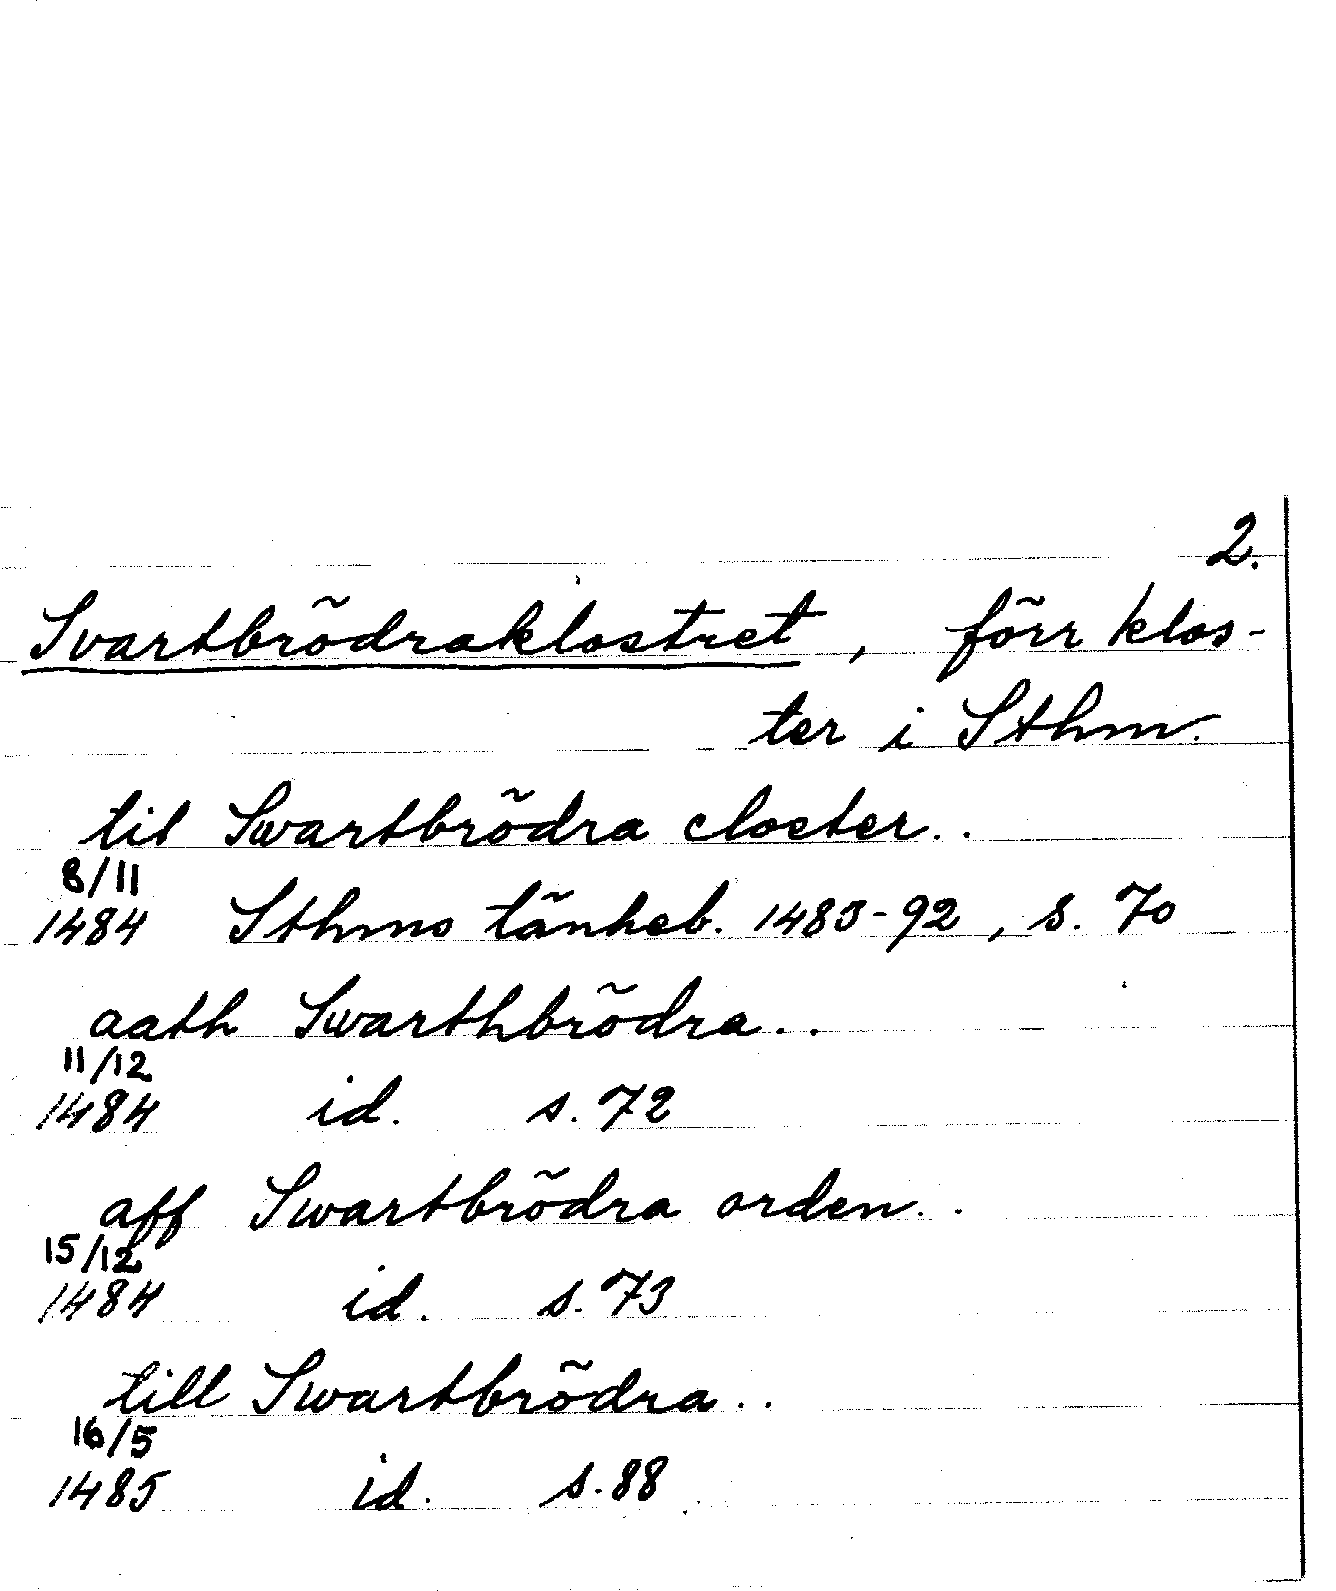 2.
Svartbrödraklostret, förr klos-
ter i Sthm.
till Swartbrödra closter..
8/11
1484 Sthms tänkeb. 1483-92, s. 70
aath Swarthbrödra..
11/12
1484 id. s. 72
aff Swartbrödra orden..
15/12
1484 id. s. 73
till Swartbrödra..
16/5
1485 id. s. 88